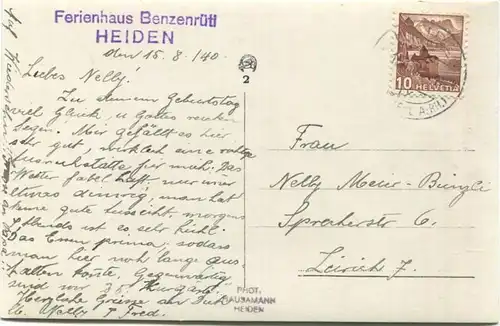 Ferienhaus Benzenrütl
HEIDEN
den 15.8./40.
Liebes Nelly!
Zu deinem Geburtstag
viel Glück, u Gottes reichen
Segen. Mir gefällt es hier
sehr gut, wirklich eine
für mich. Das
Wetter fabelhaft, nur immer
etwas dunstig, man hat
keine gute Aussicht, morgens
Abends ist es sehr kühl.
Das Essen prima, sodass
man hier noch lange aus
halten könnte. Gegenwärtig
sind wir 35
Herzliche Grüsse an Dich
u. Fred.
2
10
HELVETIA
Frau
Nelly Meier-Bünzli
Sprecherstr 6.
Zürich 7.
PHOT.
GAUSAMANN
HEIDEN